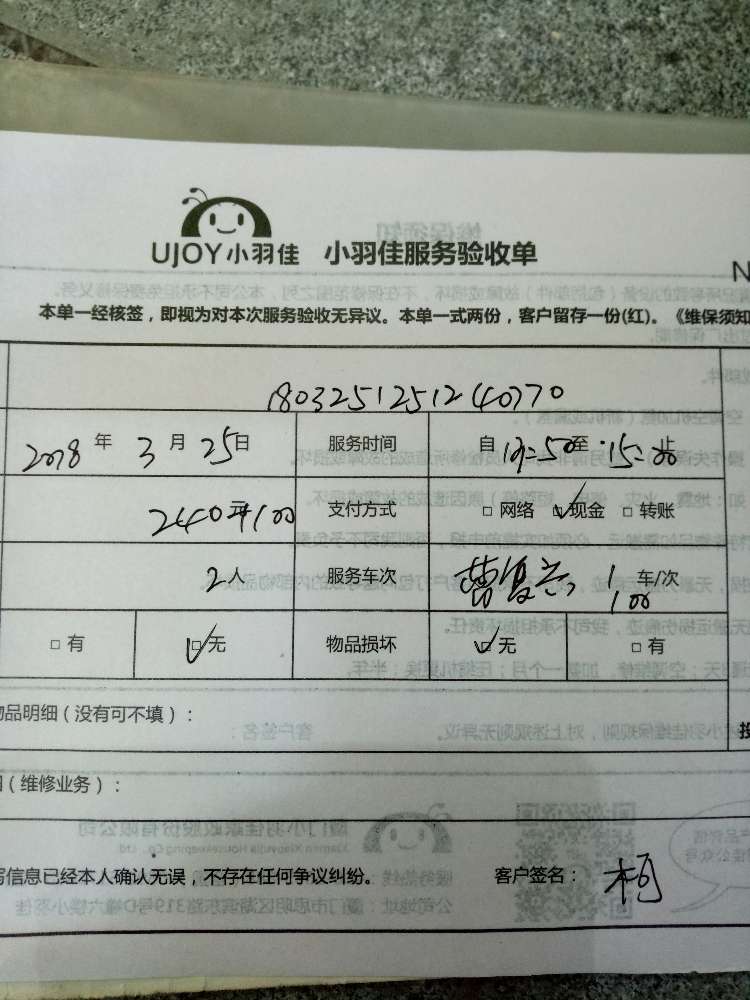 UJOY小羽佳 小羽佳服务验收单
N
本单一经核签，即视为对本次服务验收无异议。本单一式两份，客户留存一份(红)。《维保须知
1803251251240770
2018 年 3 月 25日 服务时间 自 13=50至 15=00止
240元+100 支付方式 □ 网络 ☑现金 □ 转账
2人 服务车次 1 车/次
100
□ 有 ☑无 物品损坏 ☑无 □ 有
物品明细（没有可不填）：
（维修业务）：
写信息已经本人确认无误，不存在任何争议纠纷。 客户签名： 柯